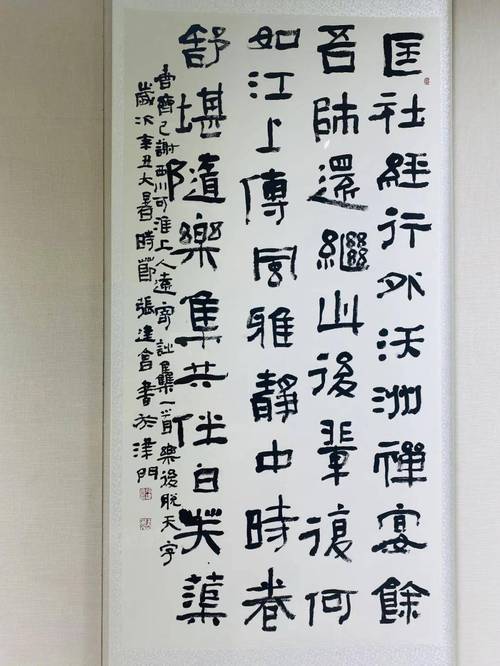 匡社經行外沃洲禪宴餘
吾師還繼此後輩復何
如江上傳風雅靜中時卷
舒堪隨樂集共伴白芙蕖
唐齊己謝西川可淮上人遠寄詩集一首樂後脫天字
歲次辛丑大暑時節張建會書於津門